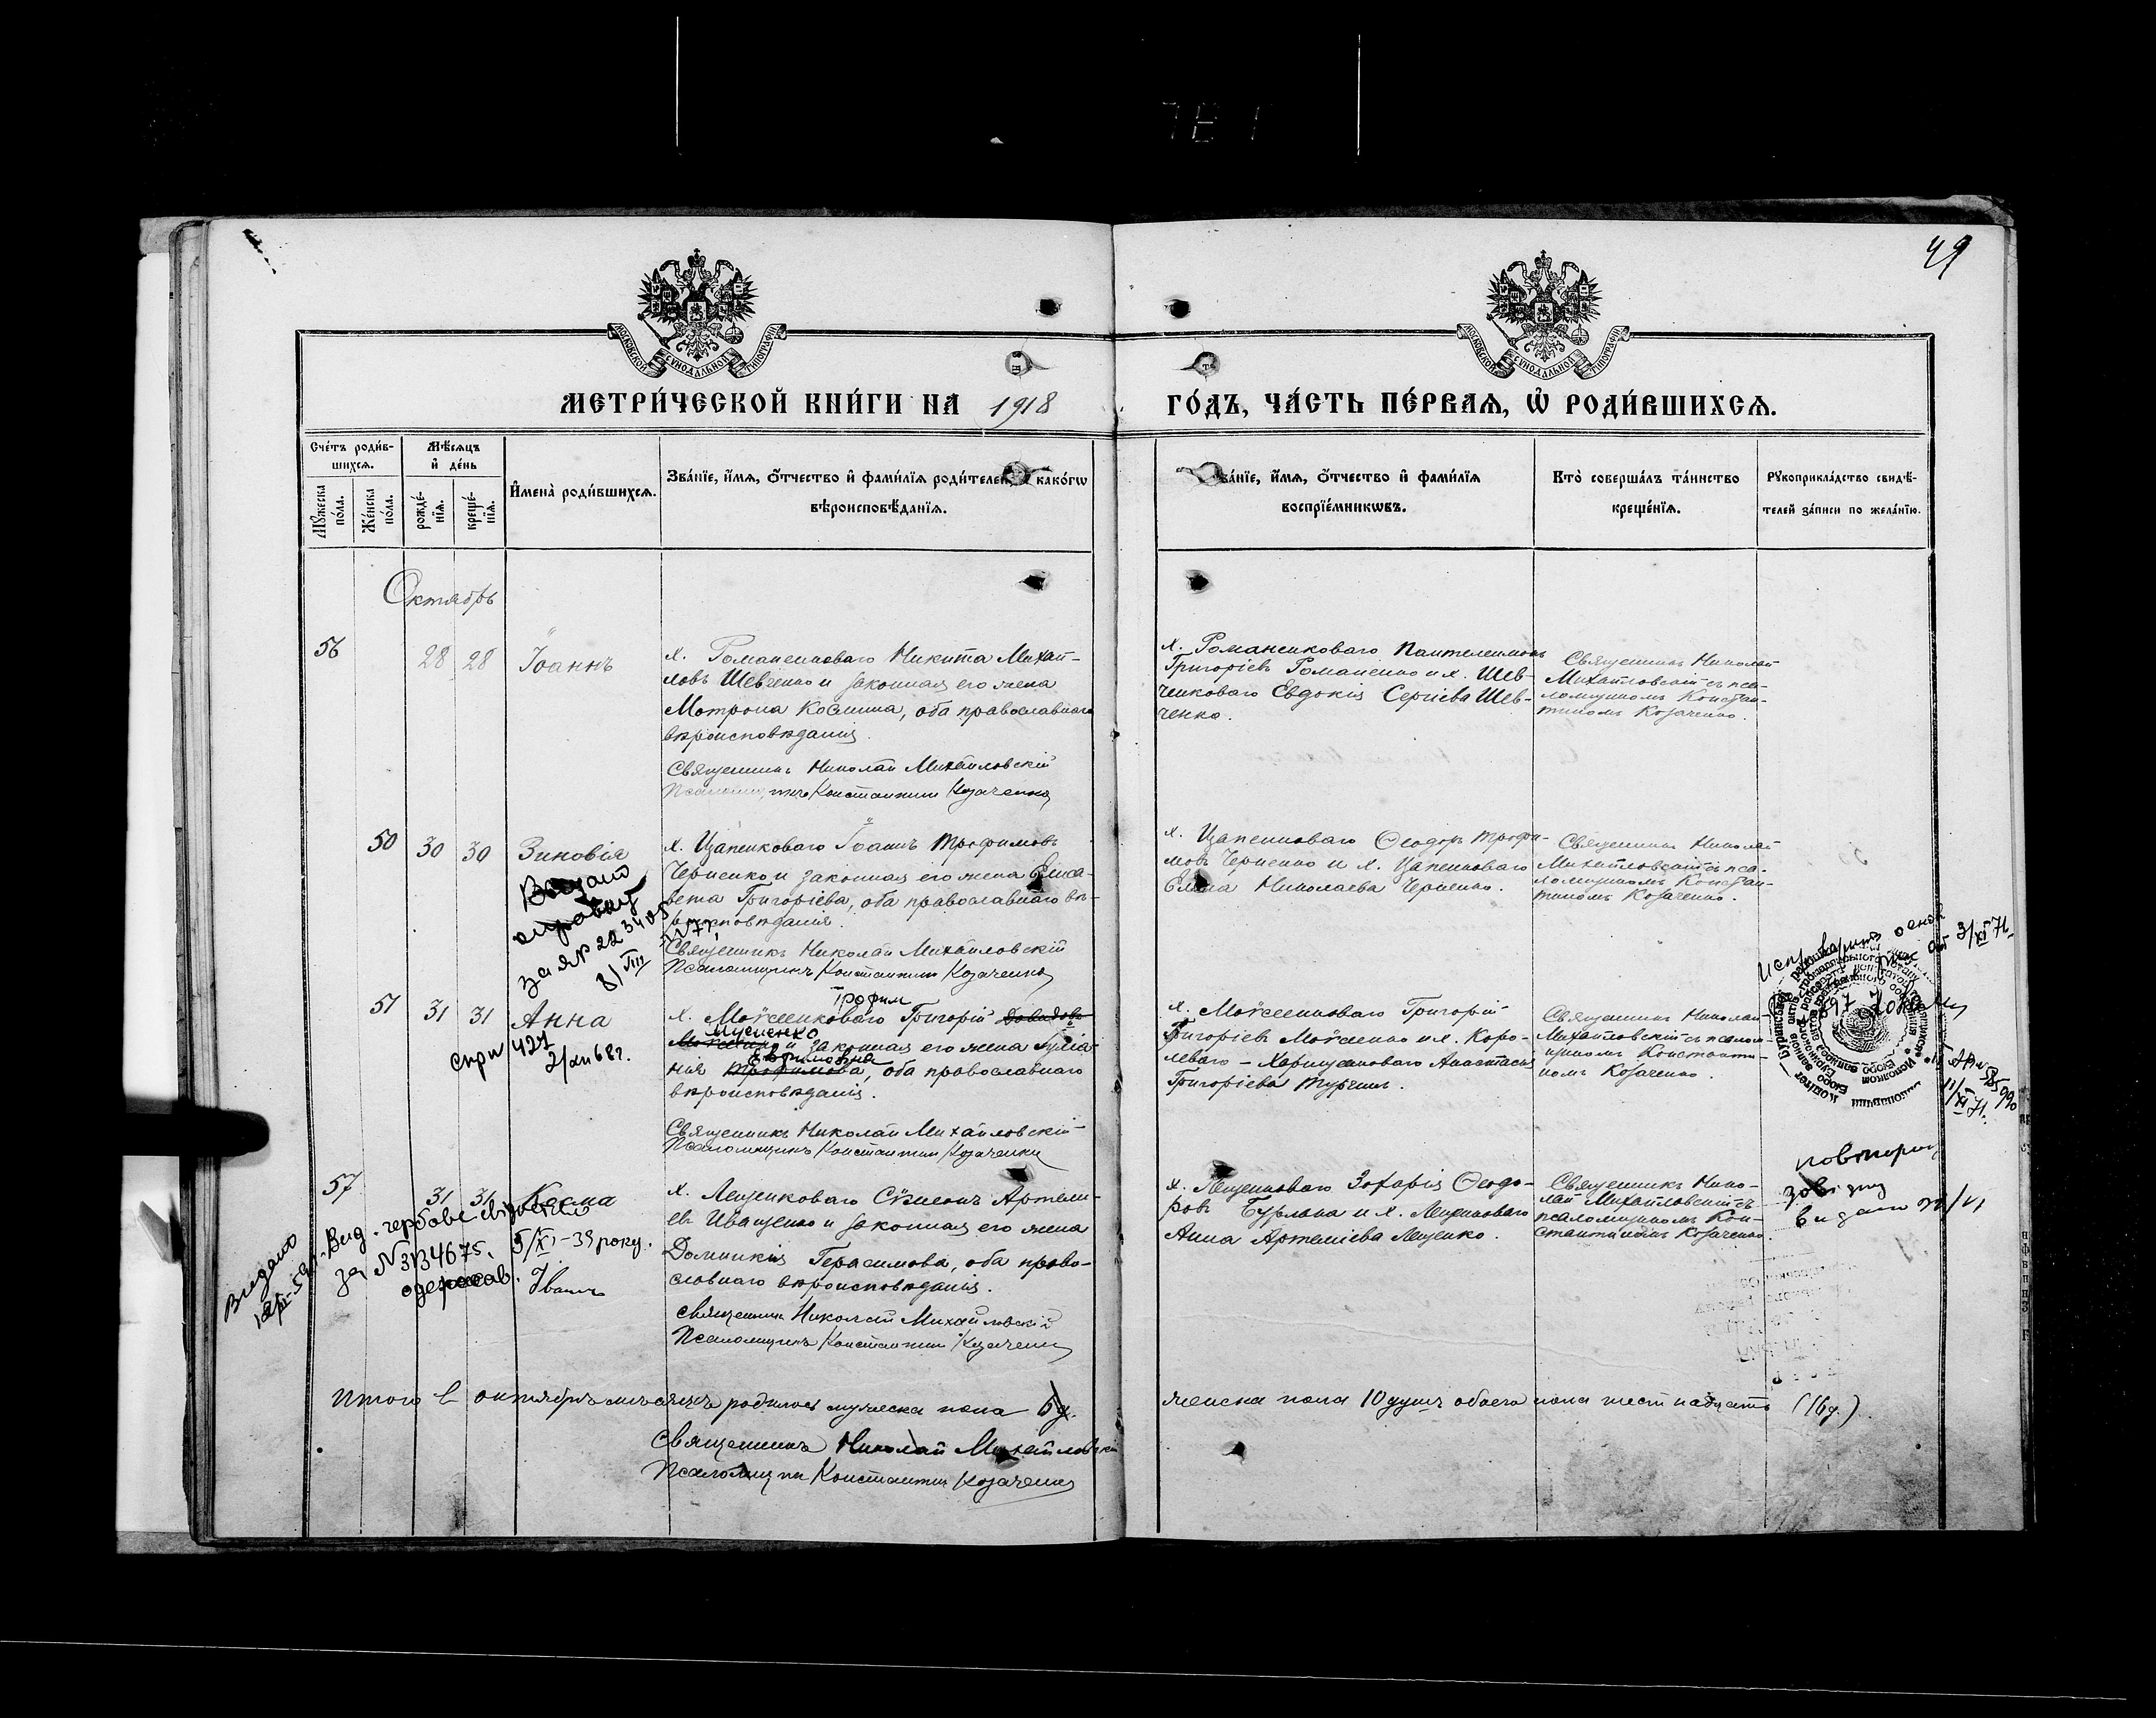 49
МОСКОВСКОЙ СУНОДАЛЬНОЙ ТИПОГРАФІИ
МОСКОВСКОЙ СУНОДАЛЬНОЙ ТИПОГРАФІИ
МЕТРИ́ЧЕСКОЙ КНИ́ГИ НА 1918 ГО́ДЪ, ЧА́СТЬ ПЕ́РВАѦ, Ѽ РОДИ́ВШИХСѦ.
Сче́тъ роди́в-
шихсѧ.
Мѣ́сѧцъ
и҆ де́нь
Мꙋ́жеска
по́ла.
Же́нска
по́ла.
рожде́-
нїѧ.
креще́-
нїѧ.
И҆мена̀ роди́вшихсѧ.
Зва́нїе, и҆́мѧ, ѻ҆́тчество и҆ фами́лїѧ роди́телей како́гѡ
вѣроисповѣ́данїѧ.
Зва́нїе, и҆́мѧ, ѻ҆́тчество и҆ фами́лїѧ
воспрїе́мникѡвъ.
Кто̀ соверша́лъ та́инство
креще́нїѧ.
Рꙋкоприкла́дство свидѣ́-
телей за́писи по жела́нїю.
Октябрь
56 28 28 Іоаннъ
х. Романенковаго Никита Михай-
ловъ Шевченко и законная его жена
Мотрона Косьмина, оба православнаго
вѣроисповѣданія.
Священникъ Николай Михайловскій
Псаломщикъ Константин Козаченко
х. Романенковаго Пантелеимонъ
Григоріевъ Романенко и х. Шев-
ченковаго Евдокія Сергіева Шев-
ченко.
Священникъ Николай
Михайловскій съ пса-
ломщикомъ Констан-
тиномъ Козаченко.
50 30 30 Зиновія
Видано
справку
за № 22
8/VIII
х. Цапенковаго Іоаннъ Трофимовъ
Черненко и законная его жена Елиса-
вета Григоріева, оба православнаго вѣ-
роисповѣданія.
Священникъ Николай Михайловскій
Псаломщикъ Константин Козаченко
х. Цапенковаго Ѳеодоръ Трофи-
мовъ Черненко и х. Цапенковаго
Елена Николаева Черненко.
Священникъ Николай
Михайловскій съ пса-
ломщикомъ Констан-
тиномъ Козаченко.
51 31 31 Анна
427
68г.
Трофим
х. Мойсеенковаго Григорій Давидовъ
и законная его жена Іуліа-
Ефимовна
нія Трофимова, оба православнаго
вѣроисповѣданія.
Священникъ Николай Михайловскій
Псаломщикъ Константин Козаченко
х. Мойсеенковаго Григорій
Григоріевъ Мойсеенко и х. Коро-
леваго – Анастасія
Григоріева Турчинъ.
Священникъ Николай
Михайловскій съ псалом-
щикомъ Константи-
номъ Козаченко.
3/XI 71
11/XI 71.
57 31 31 Косма
Вид. гербове свідоцтво
за № 3134675. 5/XI-39 року.
одержав. Іван
Видано
х. Лещенковаго Сѵмеонъ Артеми-
евъ Иващенко и законная его жена
Домникія Герасимова, оба право-
славнаго вѣроисповѣданія.
Священникъ Николай Михайловскій
Псаломщикъ Константин Козаченко
х. Лещенковаго Захарія Ѳеодо-
ровъ Бурлака и х. Лещенковаго
Анна Артеміева Лещенко.
Священникъ Нико-
лай Михайловскій съ
псаломщикомъ Кон-
стантиномъ Козаченко.
повторну
видано
Итого в октябрѣ мѣсяцѣ родилось мужеска пола 6 д. женска пола 10 душъ обоего пола шестнадцать (16 д.)
Священникъ Николай Михайловскій
Псаломщикъ Константин Козаченко